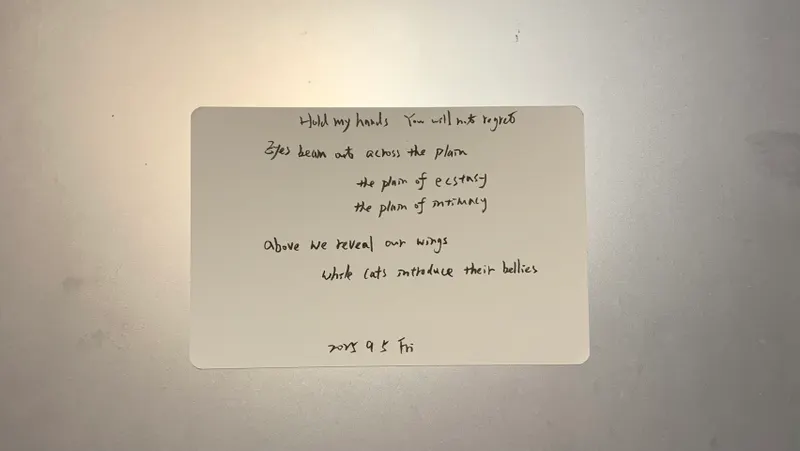 Hold my hands You will not regret
Eyes beam out across the plain
the plain of ecstasy
the plain of intimacy
above we reveal our wings
while cats introduce their bellies
2025 9 5 Fri